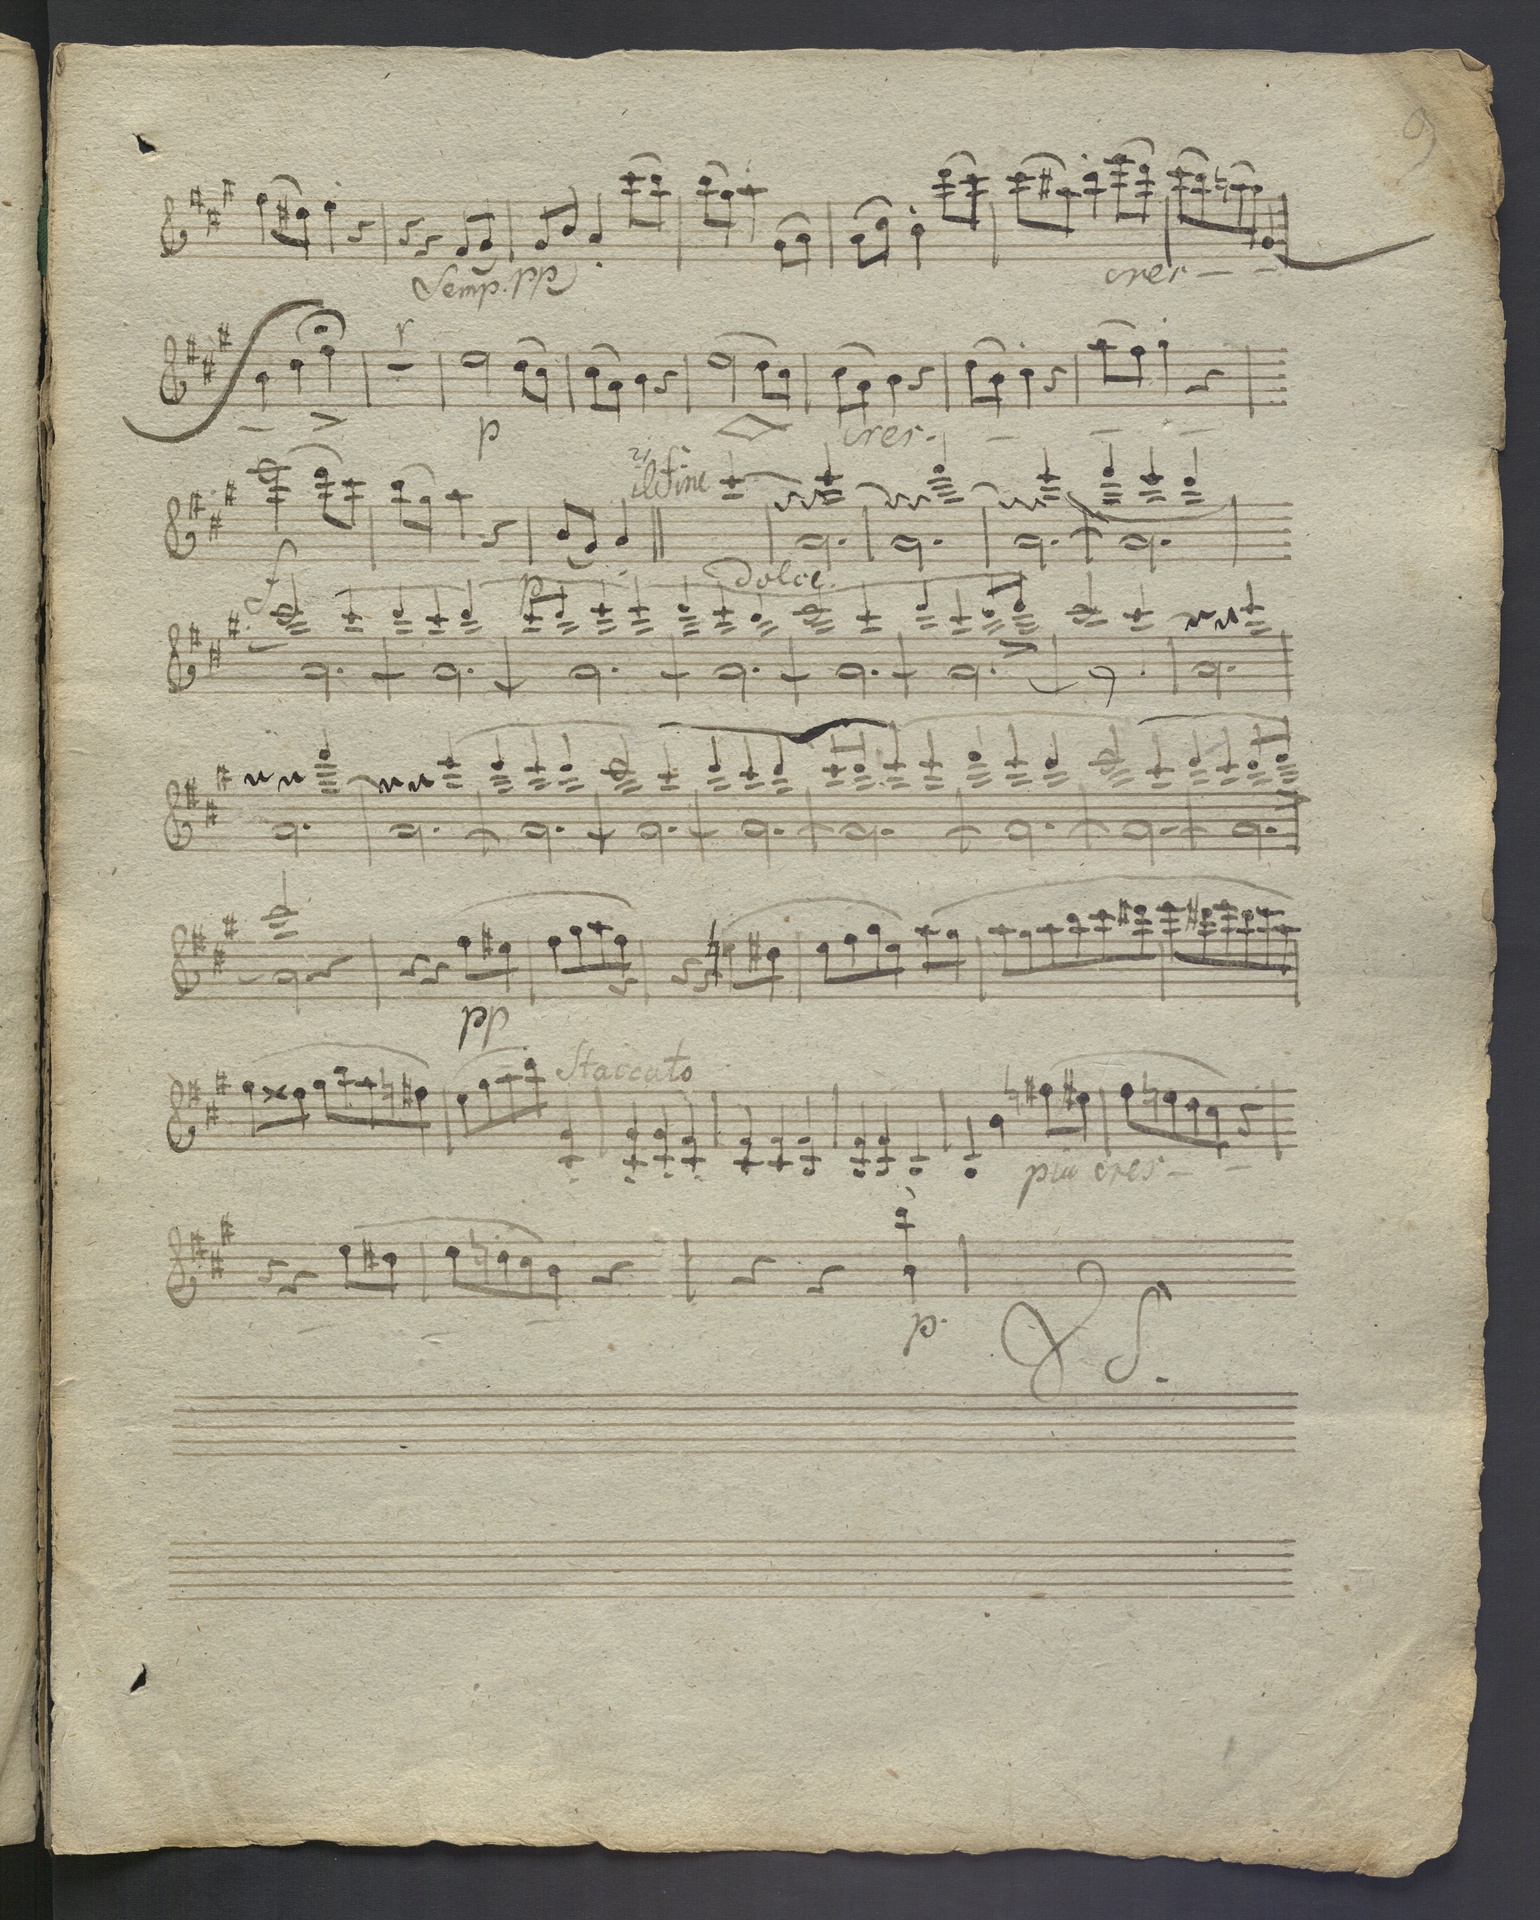 9
Semp. pp cres - -
- > p cres. - - -
il Fine
f p dolce.
pp
Staccato
più cres - -
- - -
p. S.